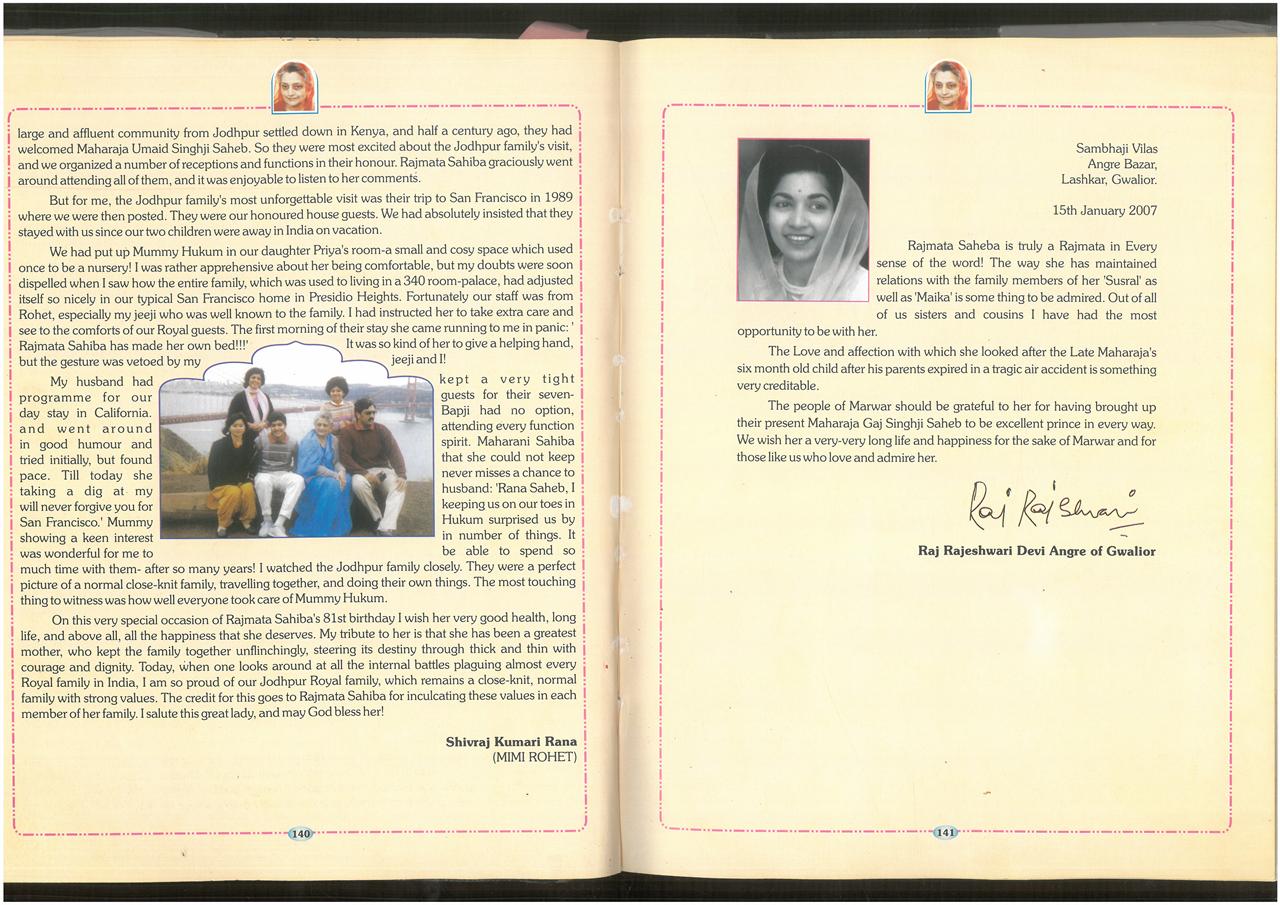 large and affluent community from Jodhpur settled down in Kenya, and half a century ago, they had
welcomed Maharaja Umaid Singhji Saheb. So they were most excited about the Jodhpur family's visit,
and we organized a number of receptions and functions in their honour. Rajmata Sahiba graciously went
around attending all of them, and it was enjoyable to listen to her comments.
But for me, the Jodhpur family's most unforgettable visit was their trip to San Francisco in 1989
where we were then posted. They were our honoured house guests. We had absolutely insisted that they
stayed with us since our two children were away in India on vacation.
We had put up Mummy Hukum in our daughter Priya's room-a small and cosy space which used
once to be a nursery! I was rather apprehensive about her being comfortable, but my doubts were soon
dispelled when I saw how the entire family, which was used to living in a 340 room-palace, had adjusted
itself so nicely in our typical San Francisco home in Presidio Heights. Fortunately our staff was from
Rohet, especially my jeeji who was well known to the family. I had instructed her to take extra care and
see to the comforts of our Royal guests. The first morning of their stay she came running to me in panic: '
Rajmata Sahiba has made her own bed!!!' It was so kind of her to give a helping hand,
but the gesture was vetoed by my jeeji and I!
My husband had kept a very tight
programme for our guests for their seven-
day stay in California. Bapji had no option,
and went around attending every function
in good humour and spirit. Maharani Sahiba
tried initially, but found that she could not keep
pace. Till today she never misses a chance to
taking a dig at my husband: 'Rana Saheb, I
will never forgive you for keeping us on our toes in
San Francisco.' Mummy Hukum surprised us by
showing a keen interest in number of things. It
was wonderful for me to be able to spend so
much time with them- after so many years! I watched the Jodhpur family closely. They were a perfect
picture of a normal close-knit family, travelling together, and doing their own things. The most touching
thing to witness was how well everyone took care of Mummy Hukum.
On this very special occasion of Rajmata Sahiba's 81st birthday I wish her very good health, long
life, and above all, all the happiness that she deserves. My tribute to her is that she has been a greatest
mother, who kept the family together unflinchingly, steering its destiny through thick and thin with
courage and dignity. Today, when one looks around at all the internal battles plaguing almost every
Royal family in India, I am so proud of our Jodhpur Royal family, which remains a close-knit, normal
family with strong values. The credit for this goes to Rajmata Sahiba for inculcating these values in each
member of her family. I salute this great lady, and may God bless her!
Shivraj Kumari Rana
(MIMI ROHET)
140
Sambhaji Vilas
Angre Bazar,
Lashkar, Gwalior.
15th January 2007
Rajmata Saheba is truly a Rajmata in Every
sense of the word! The way she has maintained
relations with the family members of her 'Susral' as
well as 'Maika' is some thing to be admired. Out of all
of us sisters and cousins I have had the most
opportunity to be with her.
The Love and affection with which she looked after the Late Maharaja's
six month old child after his parents expired in a tragic air accident is something
very creditable.
The people of Marwar should be grateful to her for having brought up
their present Maharaja Gaj Singhji Saheb to be excellent prince in every way.
We wish her a very-very long life and happiness for the sake of Marwar and for
those like us who love and admire her.
Raj Rajeshwari
Raj Rajeshwari Devi Angre of Gwalior
141